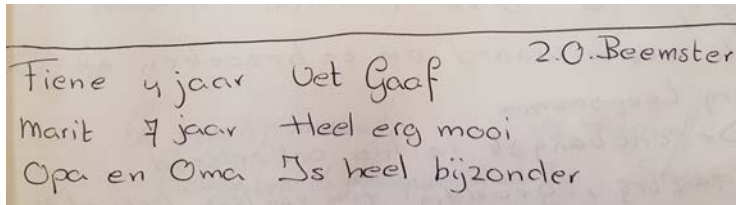 2.O.Beemster
Fiene 4 jaar Vet Gaaf
Marit 7 jaar Heel erg mooi
Opa en Oma Is heel bijzonder